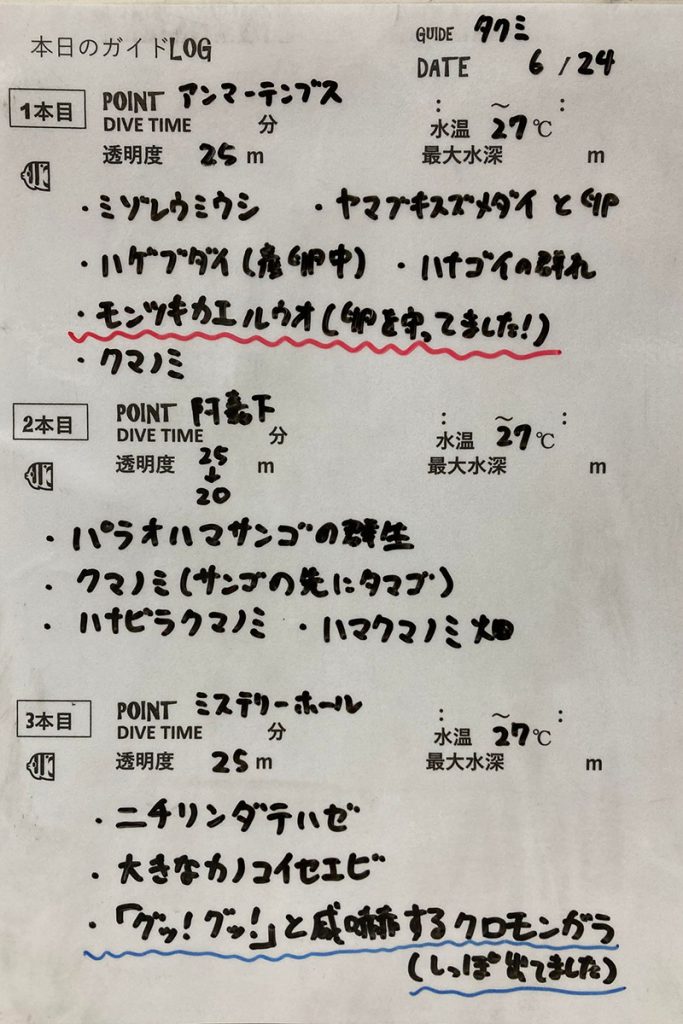 本日のガイドLOG
GUIDE タクミ
DATE 6 / 24
1本目 POINT アンマーテンブス : ～ :
DIVE TIME 分 水温 27℃
透明度 25 m 最大水深 m
・ミゾレウミウシ ・ヤマブキスズメダイと卵
・ハゲブダイ(産卵中) ・ハナゴイの群れ
・モンツキカエルウオ(卵を守ってました!)
・クマノミ
2本目 POINT 阿嘉下 : ～ :
DIVE TIME 分 水温 27℃
透明度 25→20 m 最大水深 m
・パラオハマサンゴの群生
・クマノミ(サンゴの先にタマゴ)
・ハナビラクマノミ ・ハマクマノミ畑
3本目 POINT ミステリーホール : ～ :
DIVE TIME 分 水温 27℃
透明度 25 m 最大水深 m
・ニチリンダテハゼ
・大きなカノコイセエビ
・「グッ!グッ!」と威嚇するクロモンガラ
(しっぽ出てました)